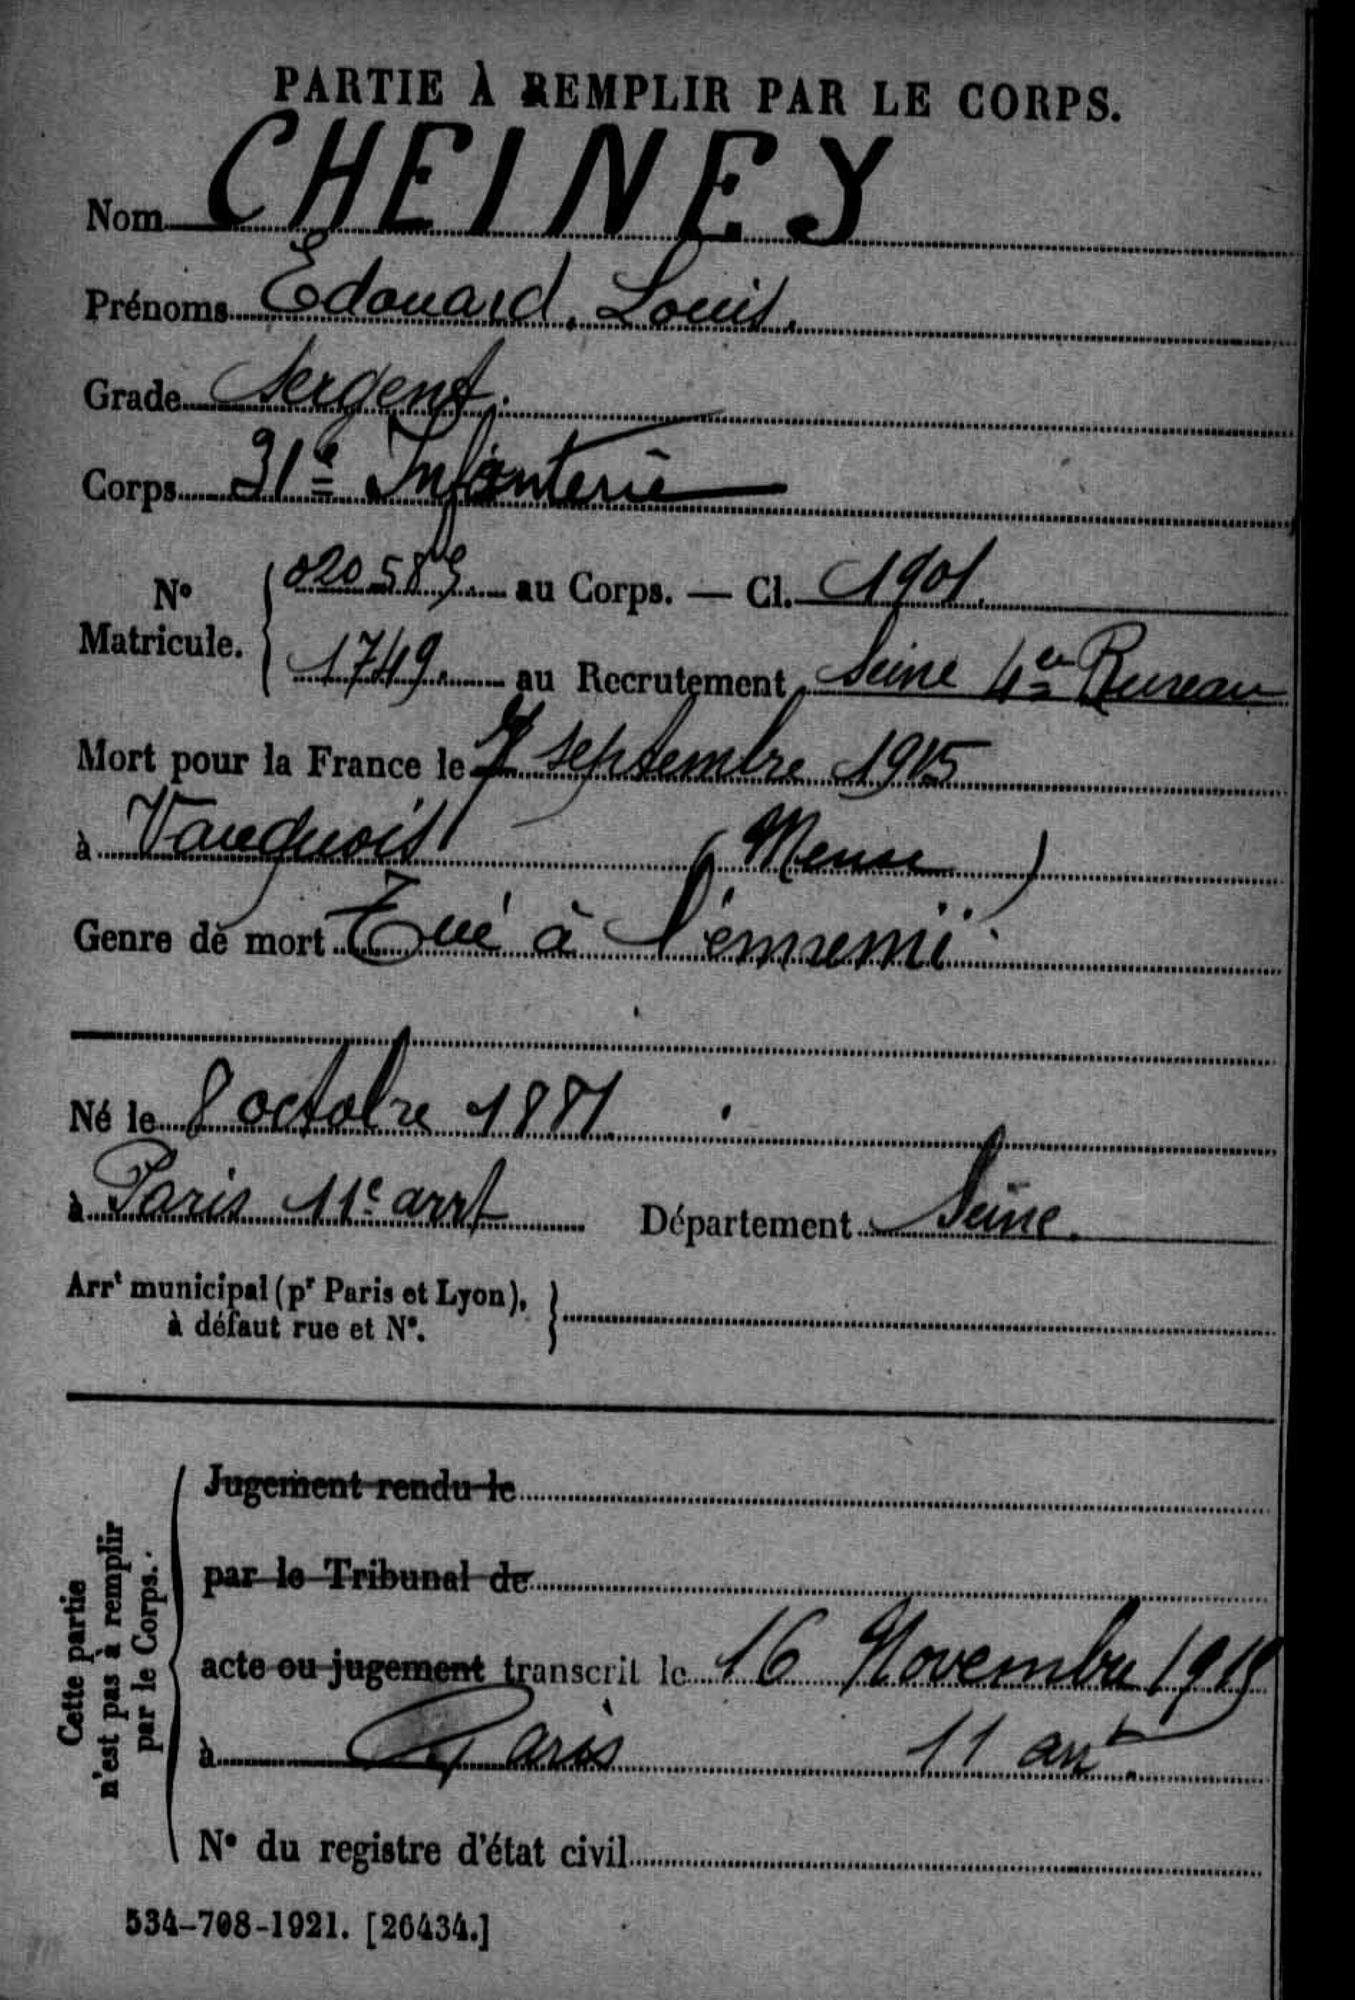 PARTIE À REMPLIR PAR LE CORPS.
Nom CHEINEY
Prénoms Edouard, Louis.
Grade Sergent.
Corps 31e Infanterie
N° Matricule. { 020589 au Corps. — Cl. 1901.
1749 au Recrutement Seine 4e Bureau
Mort pour la France le 7 septembre 1915
à Vauquois (Meuse)
Genre de mort Tué à l'ennemi.
Né le 8 octobre 1881
à Paris 11e arrt Département Seine.
Arrt municipal (pr Paris et Lyon), }
à défaut rue et N°.
Cette partie
n'est pas à remplir
par le Corps.
Jugement rendu le
par le Tribunal de
acte ou jugement transcrit le 16 Novembre 1915
à Paris 11 arrt.
N° du registre d'état civil
534-708-1921. [26434.]